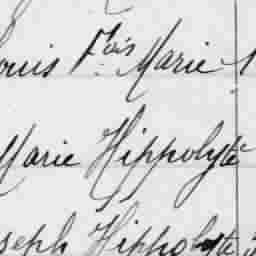 ouis Fois Marie
Marie Hippolyte
seph Hippolyte